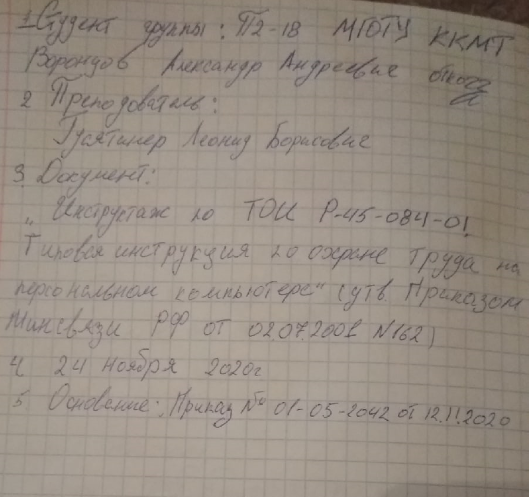 1 Студент группы: П2-18 МГОТУ ККМТ
Воронцов Александр Андреевич
2 Преподаватель:
Гусятинер Леонид Борисович
3 Документ:
„Инструктаж по ТОИ Р-45-084-01.
Типовая инструкция по охране труда на
персональном компьютере" (утв. Приказом
Минсвязи РФ от 02.07.2001 N162)
4 24 ноября 2020г
5 Основание: Приказ № 01-05-2042 от 12.11.2020